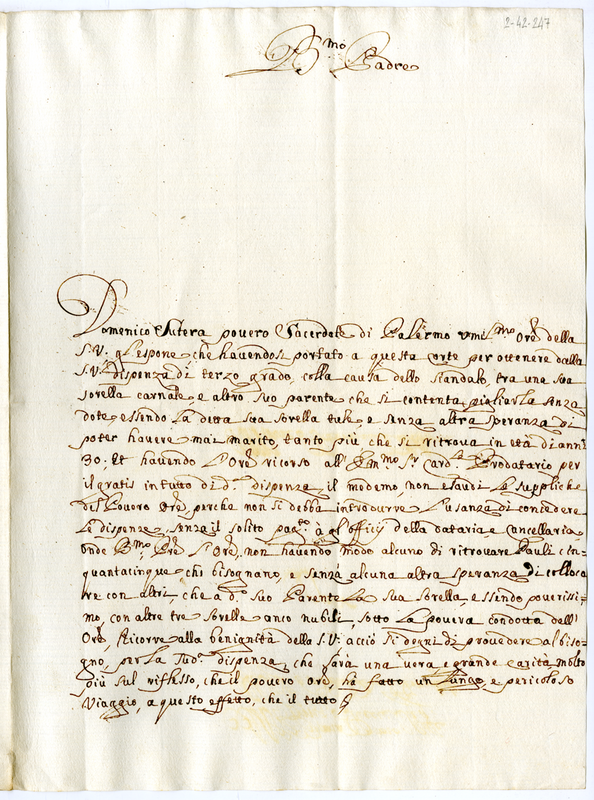 2-42-247
B.mo Padre
Domenico Sutera povero Sacerdote di Palermo umil.mo Ore. della
S.V. gl'espone che havendosi portato a questa corte per ottenere dalla
S.V. dispenza di terzo grado, colla causa dello scandalo, tra una sua
sorella carnale, e altro suo parente che si contenta pigliarla senza
dote, essendo la detta sua sorella tale, e senza altra speranza di
poter havere mai marito, tanto più che si ritrova in età di anni
30; Et havendo l'Ore. ricorso all'Em.mo Sr. Card.l Prodatario per
il gratis in tutto di d.a dispenza, il medemo, non esaudì le suppliche
del Povero Ore. perche non si debba introdurre l'usanza di concedere
le dispenze, senza il solito pag.to à gl'officij della dataria, e cancellaria
onde B.mo Pre. l'Ore. non havendo modo alcuno di ritrovare Pauli cin-
quantacinque che bisognano, e senza alcuna altra speranza di colloca
re con altri che a d.o suo Parente la sua sorella, e essendo poverissi=
mo, con altre tre sorelle anco nubili, sotto la povera condotta dell'
Ore. Ricorre alla benignità della S.V. acciò si degni di provedere al biso-
gno, per la sud.a dispenza, che sarà una vera e grande carità, molto
più sul riflesso, che il povero Ore. ha fatto un lungo, e pericoloso
viaggio, a questo effetto, che il tutto